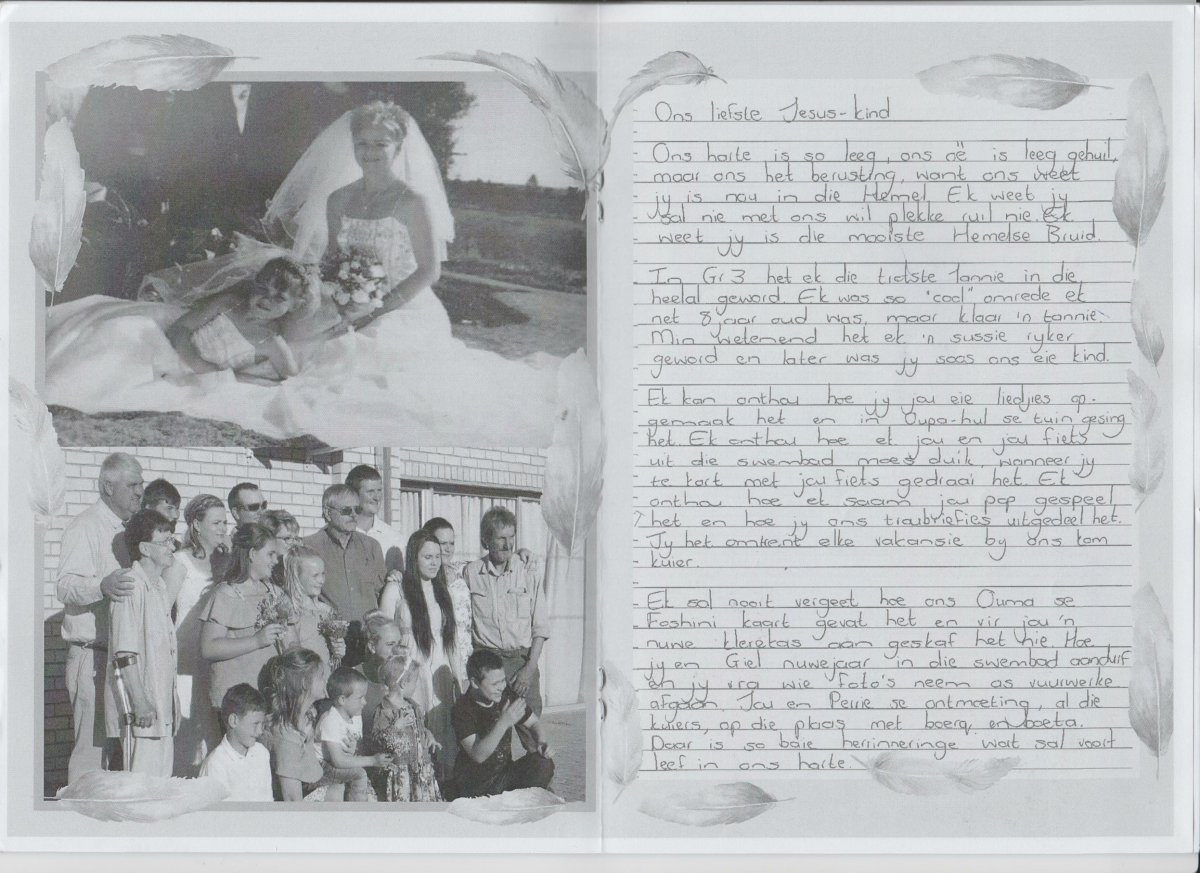 Ons liefste Jesus-kind
Ons harte is so leeg, ons oë is leeg gehuil,
maar ons het berusting, want ons weet
jy is nou in die Hemel. Ek weet jy
sal nie met ons wil plekke ruil nie. Ek
weet jy is die mooiste Hemelse Bruid.
In Gr 3 het ek die trotste Tannie in die
heelal geword. Ek was so "cool" omrede ek
net 8 jaar oud was, maar klaar 'n tannie.
Min wetemend het ek 'n sussie ryker
geword en later was jy soos ons eie kind.
Ek kan onthou hoe jy jou eie liedjies op-
gemaak het en in Oupa-hul se tuin gesing
het. Ek onthou hoe ek jou en jou fiets
uit die swembad moes duik, wanneer jy
te kort met jou fiets gedraai het. Ek
onthou hoe ek saam jou pop gespeel
het en hoe jy ons troubriefies uitgedeel het.
Jy het omtrent elke vakansie by ons kom
kuier.
Ek sal nooit vergeet hoe ons Ouma se
Foshini kaart gevat het en vir jou 'n
nuwe klerekas aan geskaf het nie. Hoe
jy en Giel nuwejaar in die swembad aandrif
en jy vra wie foto's neem as vuurwerke
afgaan. Jou en Perrie se ontmoeting, al die
kuiers, op die plaas met boera en boeta.
Daar is so baie herrinneringe wat sal voort
leef in ons harte.